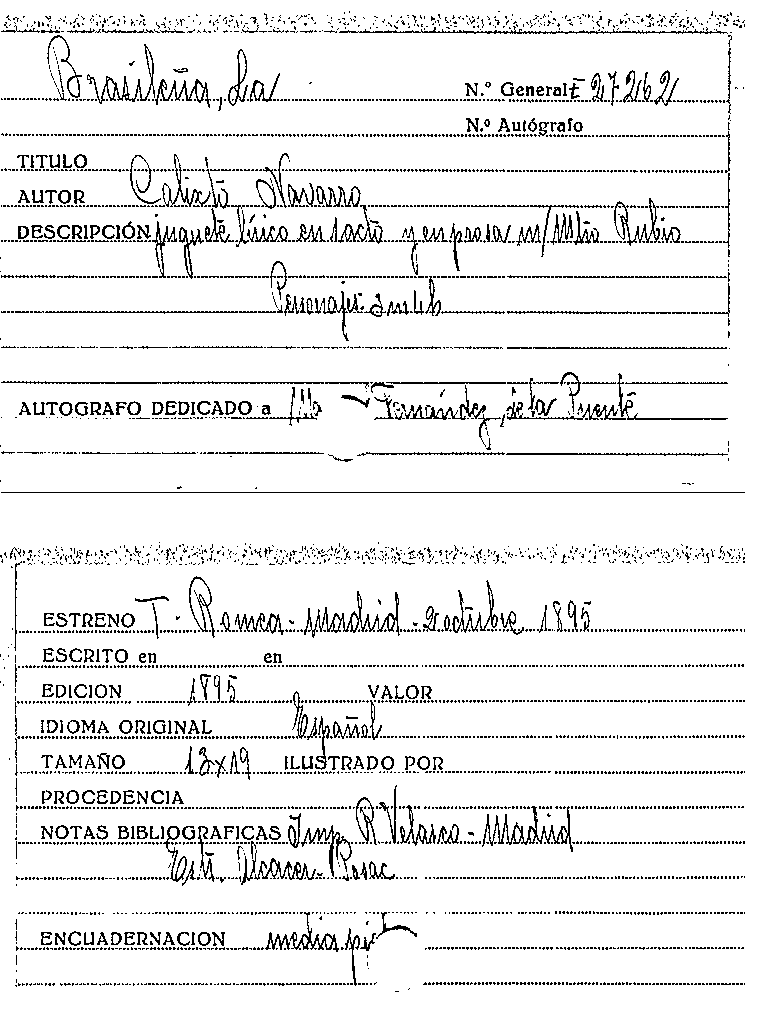 Brasileña, La
N.º General E 27262
N.º Autógrafo
TITULO
AUTOR Calixto Navarro
DESCRIPCIÓN juguete lírico en 1 acto y en prosa m/ Mtro Rubio
Personajes: 3 m 4 h
AUTOGRAFO DEDICADO a Fernández de la Puente
ESTRENO T. Romea - Madrid - 2 octubre 1895
ESCRITO en en
EDICION 1895 VALOR
IDIOMA ORIGINAL Español
TAMAÑO 13x19 ILUSTRADO POR
PROCEDENCIA
NOTAS BIBLIOGRAFICAS Imp. R Velasco - Madrid
Estr. Alcacer - Posac
ENCUADERNACION media piel